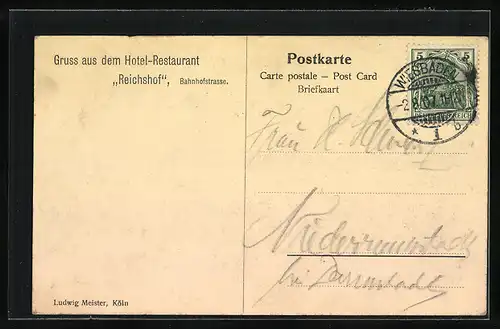 Gruss aus dem Hotel-Restaurant
„Reichshof“, Bahnhofstrasse.
Postkarte
Carte postale – Post Card
Briefkaart
5 5
WIESBADEN
1
Frau H.
Niederramstadt
bei Darmstadt
Ludwig Meister, Köln